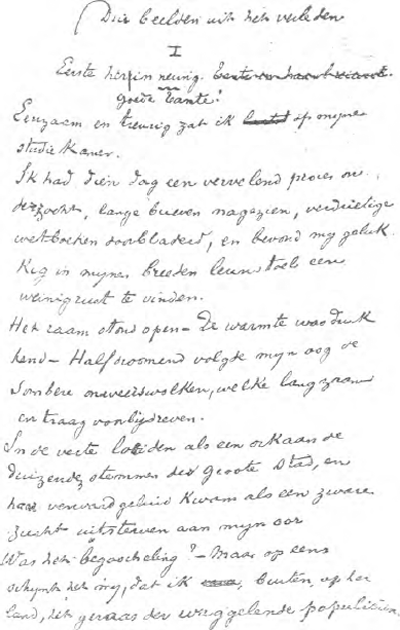 Drie beelden uit het verleden
I
Eerste herinnering.
goede tante!
Eenzaam en treurig zat ik op mijne
studie Kamer.
Ik had dien dag een vervelend proces on-
derzocht, lange brieven nagezien, verdrietige
wetboeken doorbladerd, en bevond my geluk-
kig in mynen breeden leunstoel een
weinig rust te vinden.
Het raam stond open – De warmte was druk
kend – Half droomend volgde mijn oog de
sombere onweerswolken, welke langzaam
en traag voorbijdreven.
In de verte loeiden als een orkaan de
duizende stemmen der groote stad, en
haar verward geluid kwam als een zware
zucht uitsterven aan mijn oor
Was het begoocheling? – Maar op eens
schynt het my, dat ik buiten, op het
land, het geraas der wiggelende populieren